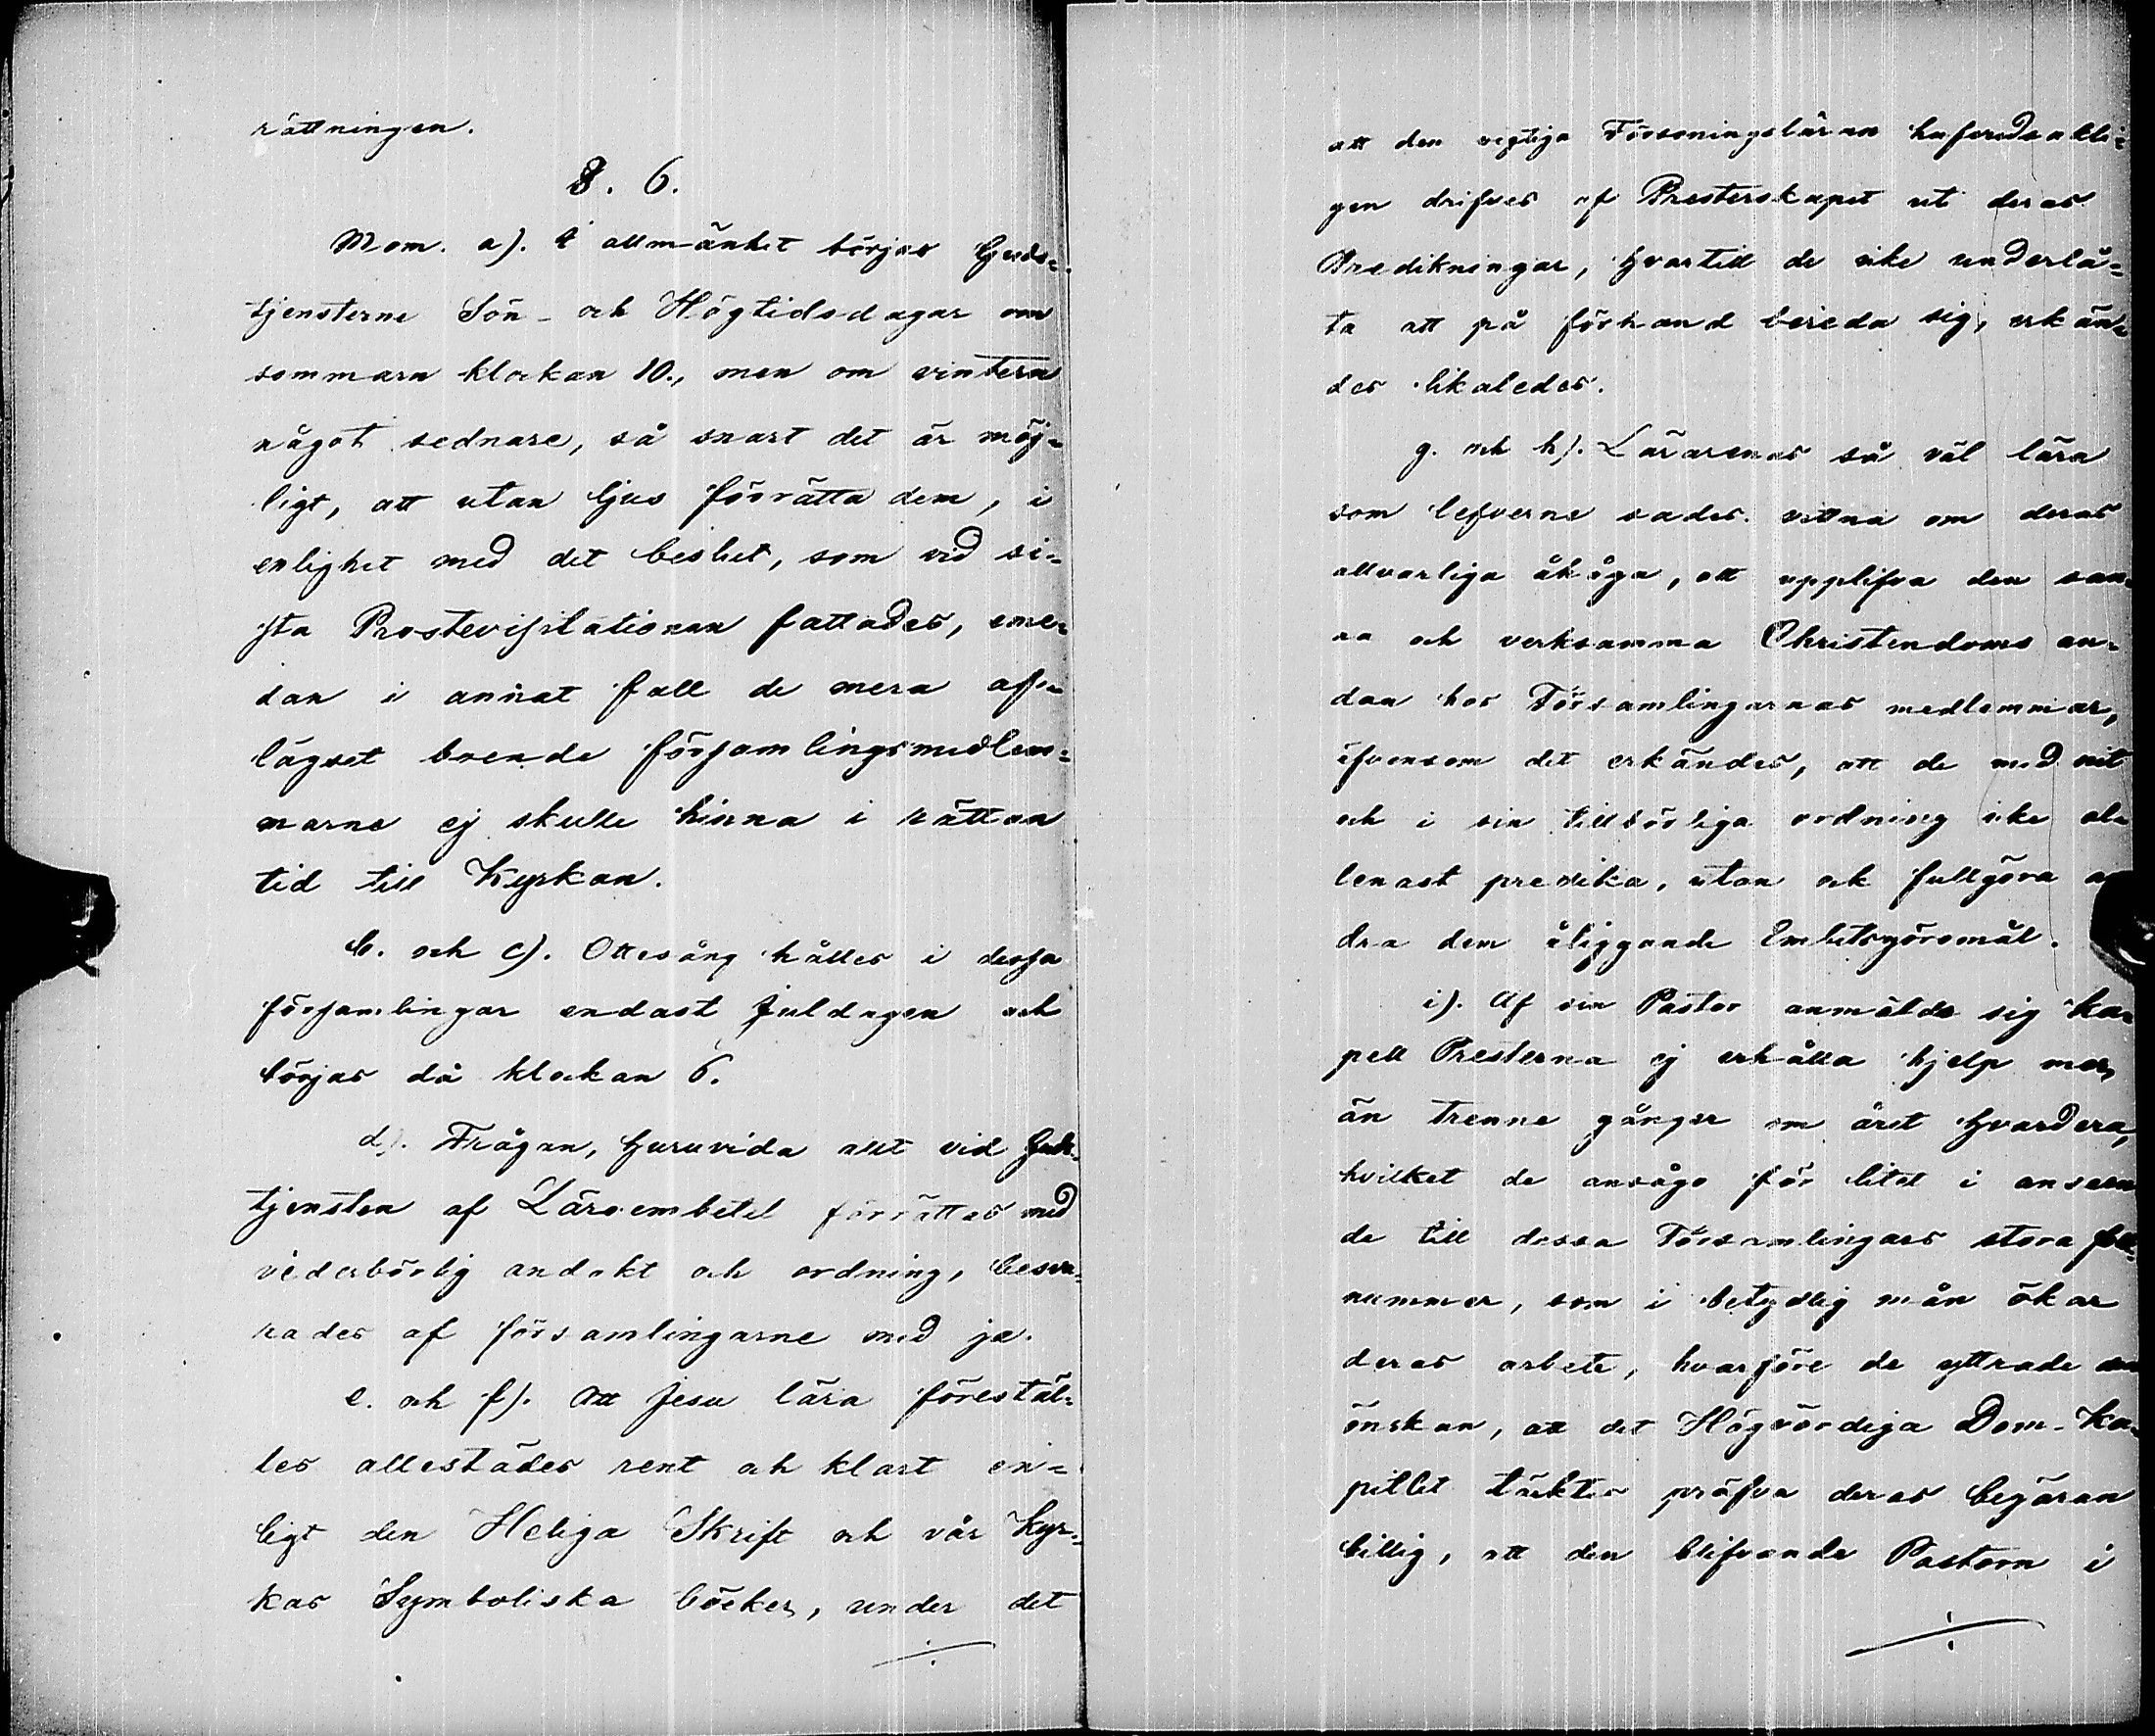 rättningen.
§. 6.
Mom. a). I allmänhet börjas Guds-
tjensterne Sön- och Högtidsdagar om
sommarn klockan 10., men om vintern
något sednare, så snart det är möj-
ligt, att utan ljus förrätta dem, i
enlighet med det beslut, som vid si-
sta Prostevisitationen fattades, eme-
dan i annat fall de mera af-
lägset boende församlingsmedlem-
marne ej skulle hinna i rättan
tid till Kyrkan.
b. och c). Ottesång hålles i dessa
församlingar endast Juldagen och
börjas då klockan 6.
d). Frågan, huruvida allt vid Guds-
tjensten af Läroembetet förrättas med
vederbörlig andakt och ordning, besva-
rades af församlingarne med ja.
e. och f). Att Jesu lära förestäl-
les allestädes rent och klart en-
ligt den Heliga Skrift och vår Kyr-
kas Symboliska böcker, under det
att den vigtiga Försoningsläran hufvudsakli-
gen drifves af Presterskapet ut deras
Predikningar, hvartill de icke underlå-
ta att på förhand bereda sig, erkän-
des likaledes.
g. och h). Lärarenas så väl lära
som lefverne sades vittna om deras
allvarliga åhåga, att upplifva den san-
na och verksamma Christendoms an-
dan hos Församlingarnas medlemmar,
äfvensom det erkändes, att de med nit
och i sin tillbörliga ordning icke al-
lenast predika, utan ock fullgöra an
dra dem åliggande Embetsgöromål.
i). Af sin Pastor anmälde sig Ka-
pell Presterna ej erhålla hjelp mer,
än trenne gånger om året hvardera,
hvilket de ansågo för litet i anseen
de till dessa Församlingars stora folk-
nummer, som i betydlig mån ökar
deras arbete, hvarföre de yttrade den
önskan, att det Högvördiga Dom-Ka-
pitlet täcktes pröfva deras begäran
billig, att den blifvande Pastorn i